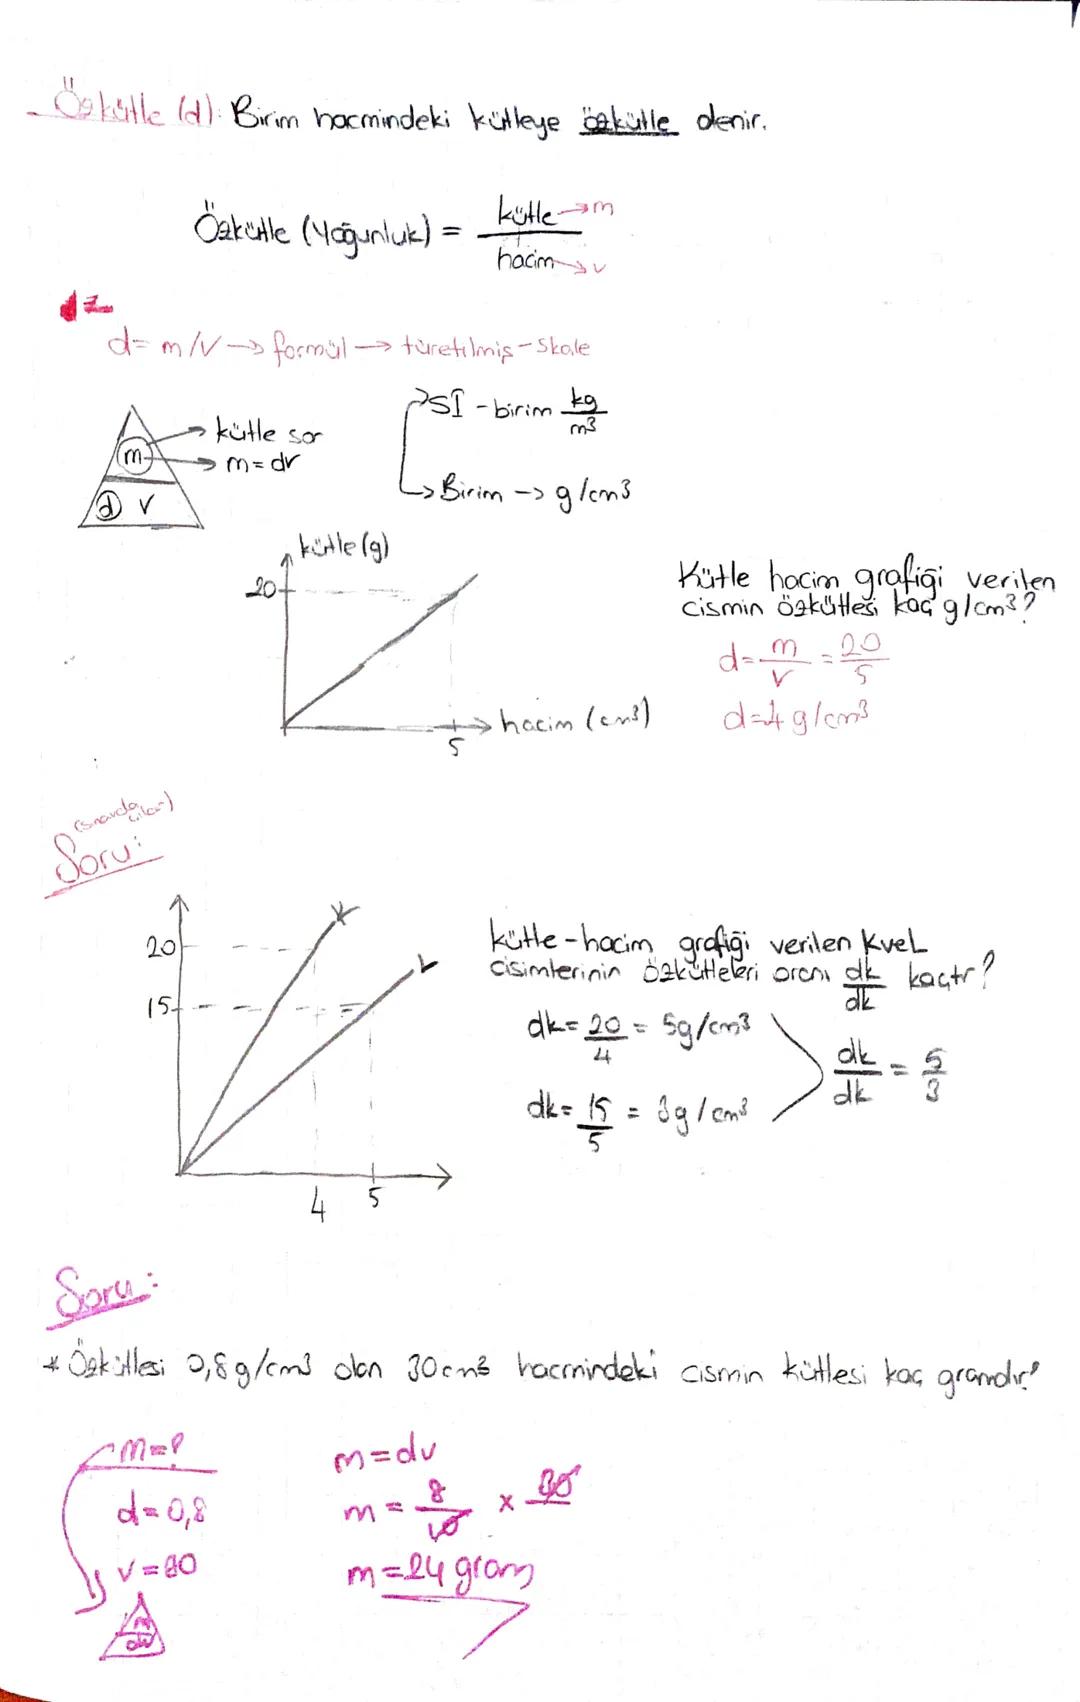 - Özkütle (d): Birim hacmindeki kütleye özkütle denir.
Özkütle (Yoğunluk) = kütle → m
hacim → v
d=
d= m/V → formül → türetilmiş - Skale
SI - birim kg
m³
kütle sor
m
m = dv
d v
Birim -> g/cm3
kütle (g)
20
hacim (cm³)
5
Kütle hacim grafiği verilen
cismin özkütlesi kaç g/cm³?
d= m = 20
v 5
d=4 g/cm³
(sınavda çıkar)
Soru:
K
20
L
15
4 5
kütle - hacim grafiği verilen KveL
cisimlerinin özkütleleri oranı dk kaçtr?
dk
dk= 20 = 5g/cm³
4
dk= 15 = 3g/cm³
5
dk = 5
dk 3
Soru:
* Özkütlesi 0,8 g/cm3 olan 30cm³ hacmindeki cismin kütlesi kaç gramdır?
m=?
d=0,8
v=30
m
dv
m=dv
m = 8 x 30
10
m=24 gram